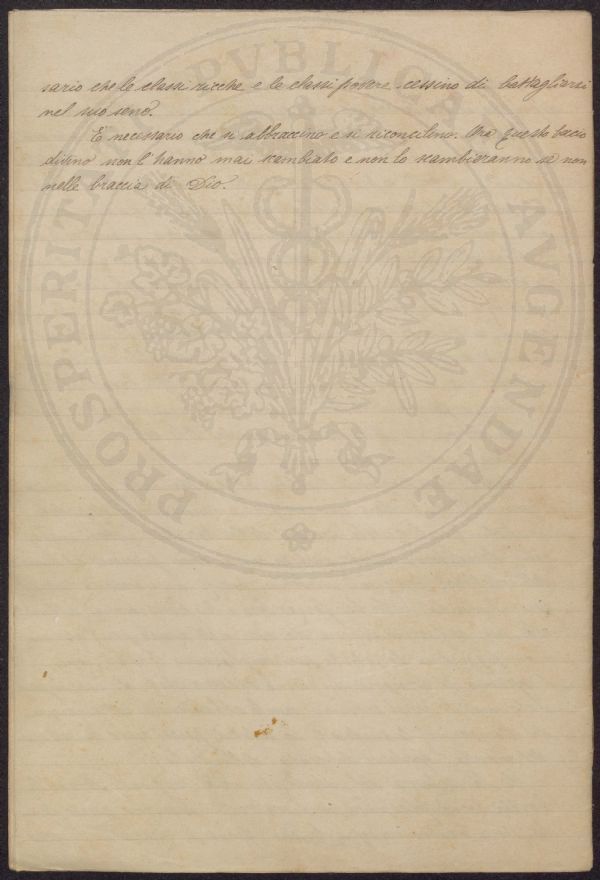 sario che le classi ricche e le classi povere cessino di battagliarsi
nel suo seno.
E' necessario che si abbraccino e si riconcilino. Ma questo bacio
divino non l'hanno mai scambiato e non lo scambieranno se non
nelle braccia di Dio.
PROSPERITATI PVBLICAE AVGENDAE